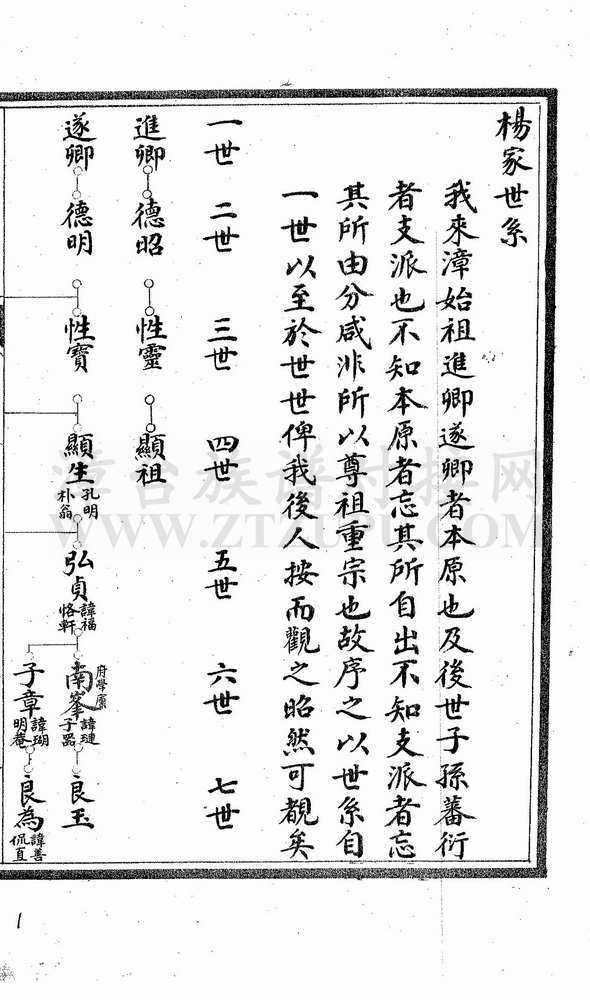 楊家世系
我來漳始祖進卿遂卿者本原也及後世子孫蕃衍
者支派也不知本原者忘其所自出不知支派者忘
其所由分咸非所以尊祖重宗也故序之以世系自
一世以至於世世俾我後人按而觀之昭然可覩矣
一世 二世 三世 四世 五世 六世 七世
進卿 德昭 性靈 顯祖
遂卿 德明 性寶 顯生 孔明 朴翁 弘貞 諱福 恪軒 南峯 府學廩 諱璉 子器 良玉
子章 諱瑚 明菴 良為 諱善 侃直
漳台族谱对接网
WWW.ZTZUPU.COM
1